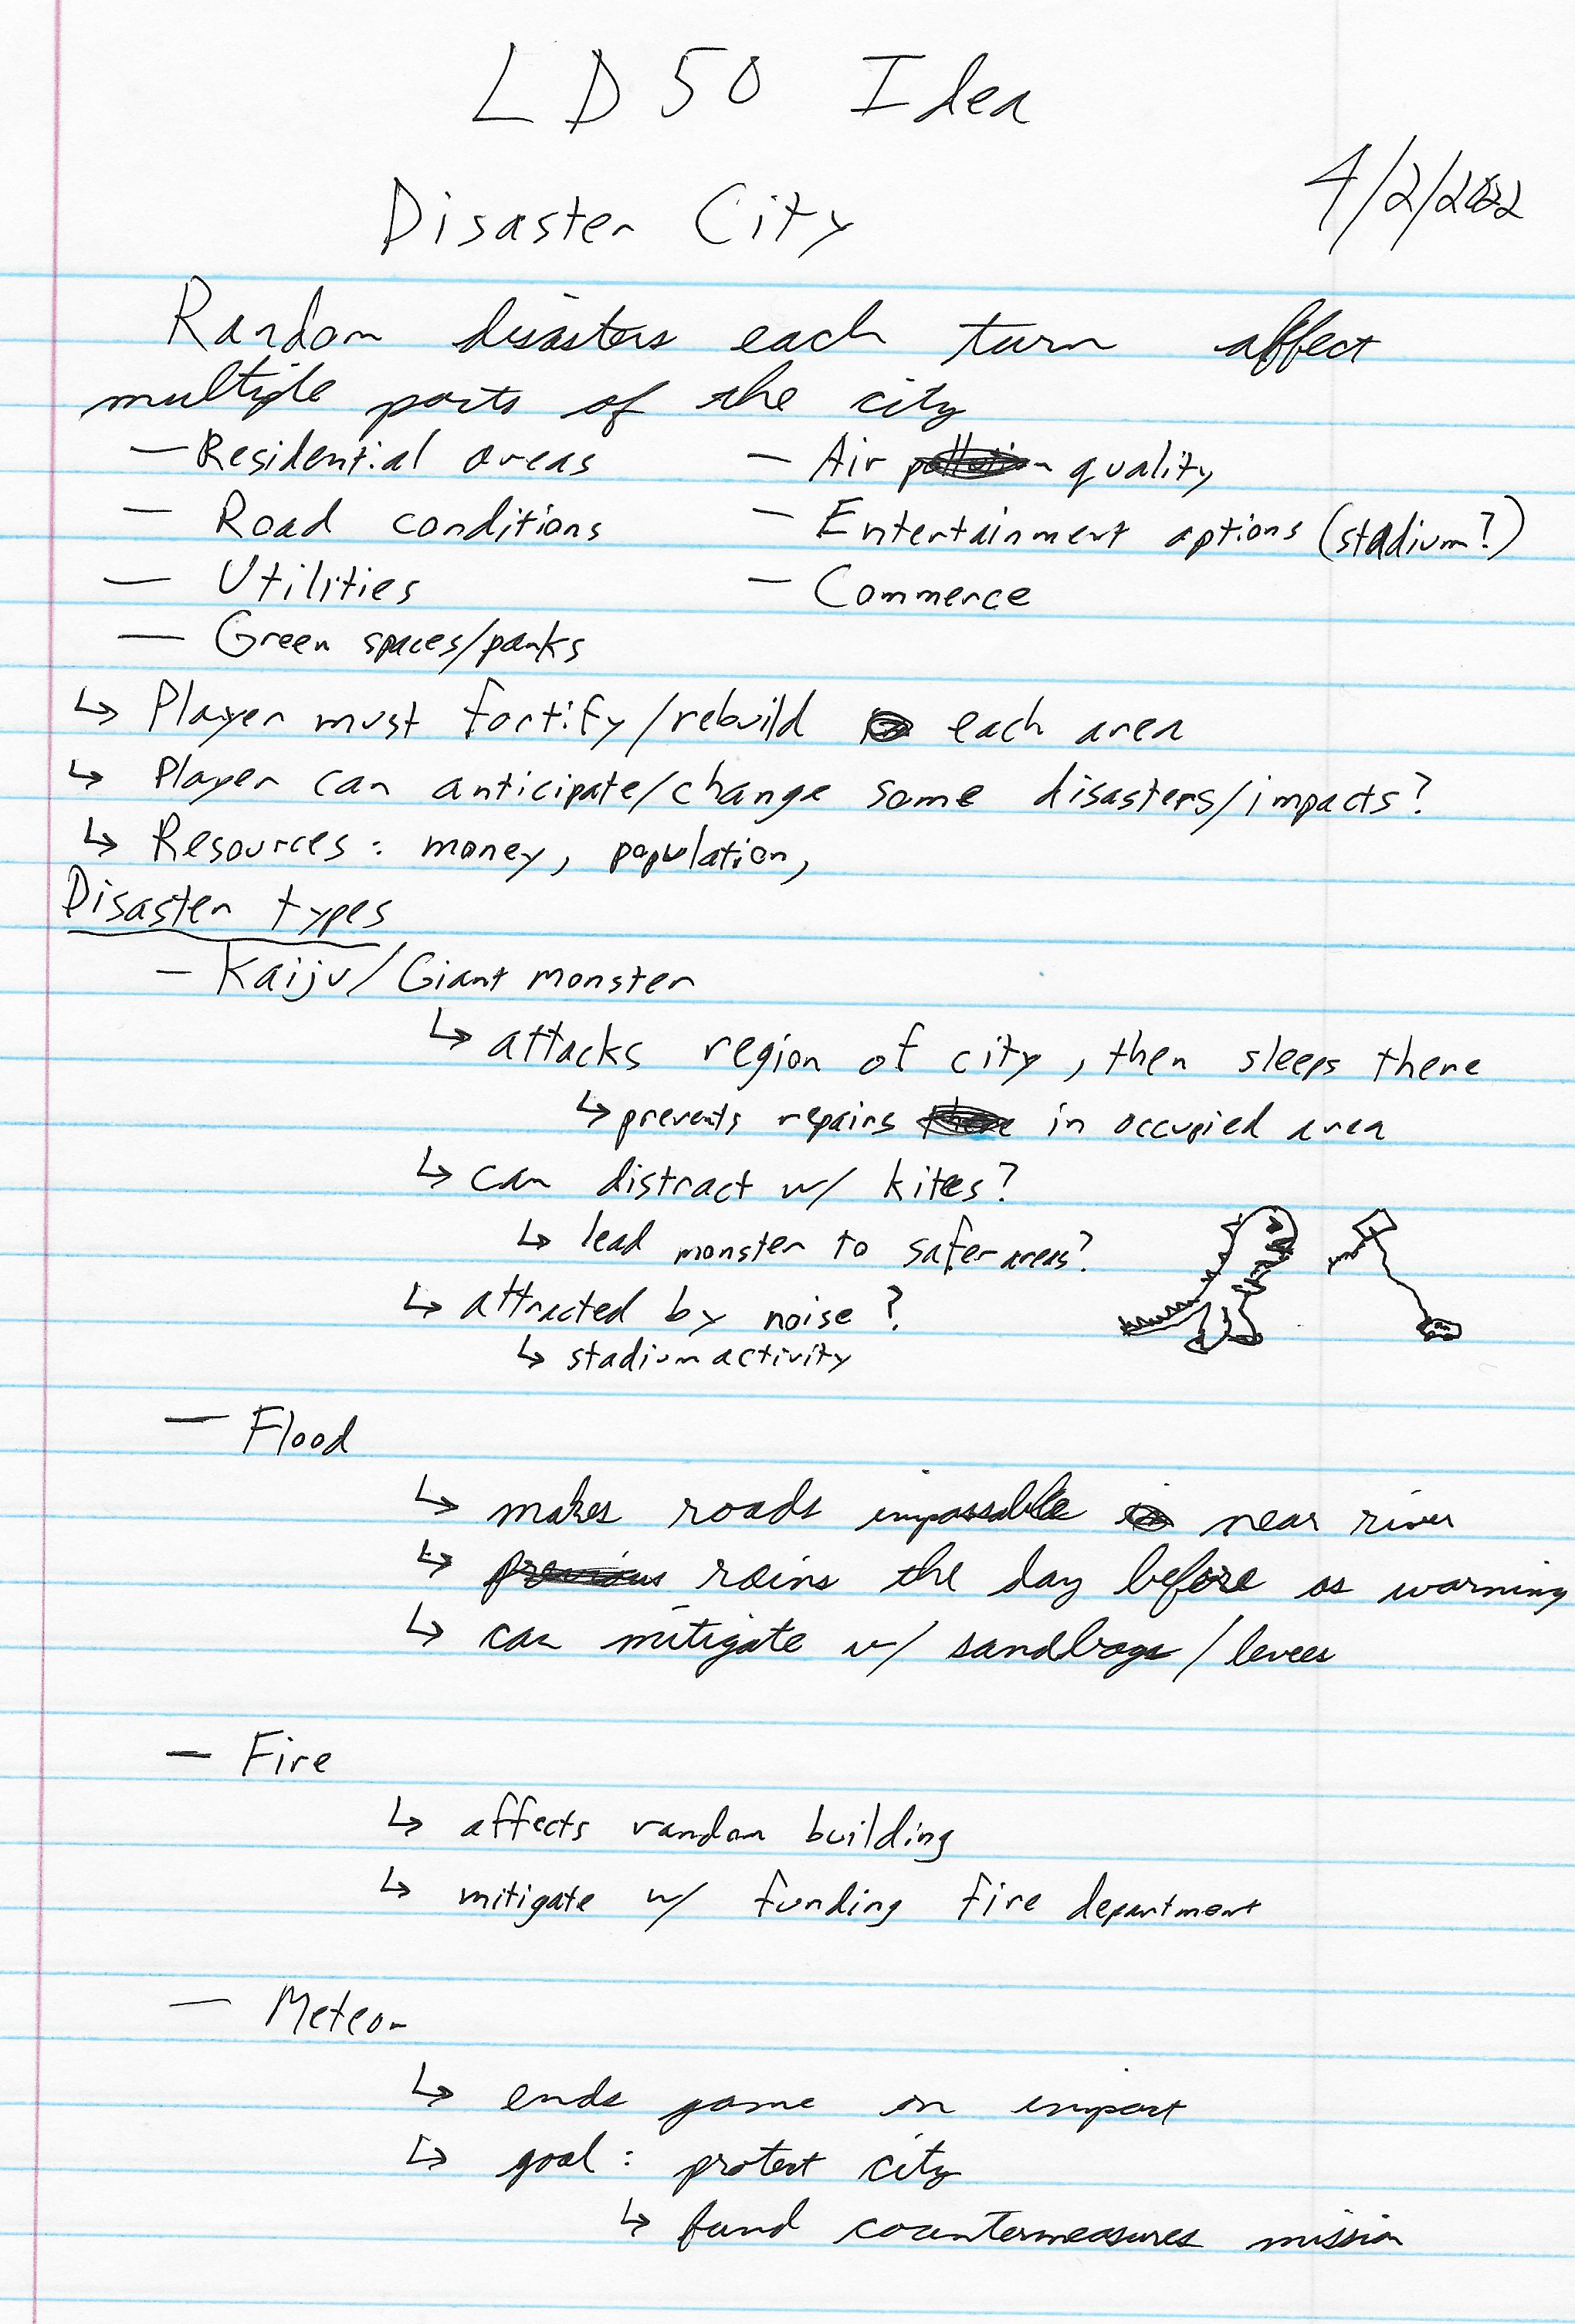 LD50 Idea
4/2/2022
Disaster City
Random disasters each turn affect
multiple parts of the city
— Residential areas
— Road conditions
— Utilities
— Green spaces/parks
— Air quality
— Entertainment options (stadium?)
— Commerce
↳ Player must fortify/rebuild each area
↳ Player can anticipate/change some disasters/impacts?
↳ Resources: money, population,
Disaster types
— Kaiju/Giant monster
↳ attacks region of city, then sleeps there
↳ prevents repairs in occupied area
↳ can distract w/ kites?
↳ lead monster to safer areas?
↳ attracted by noise?
↳ stadium activity
— Flood
↳ makes roads impassable near river
↳ rains the day before as warning
↳ can mitigate w/ sandbags/levees
— Fire
↳ affects random building
↳ mitigate w/ funding fire department
— Meteor
↳ ends game on impact
↳ goal: protect city
↳ fund countermeasures mission